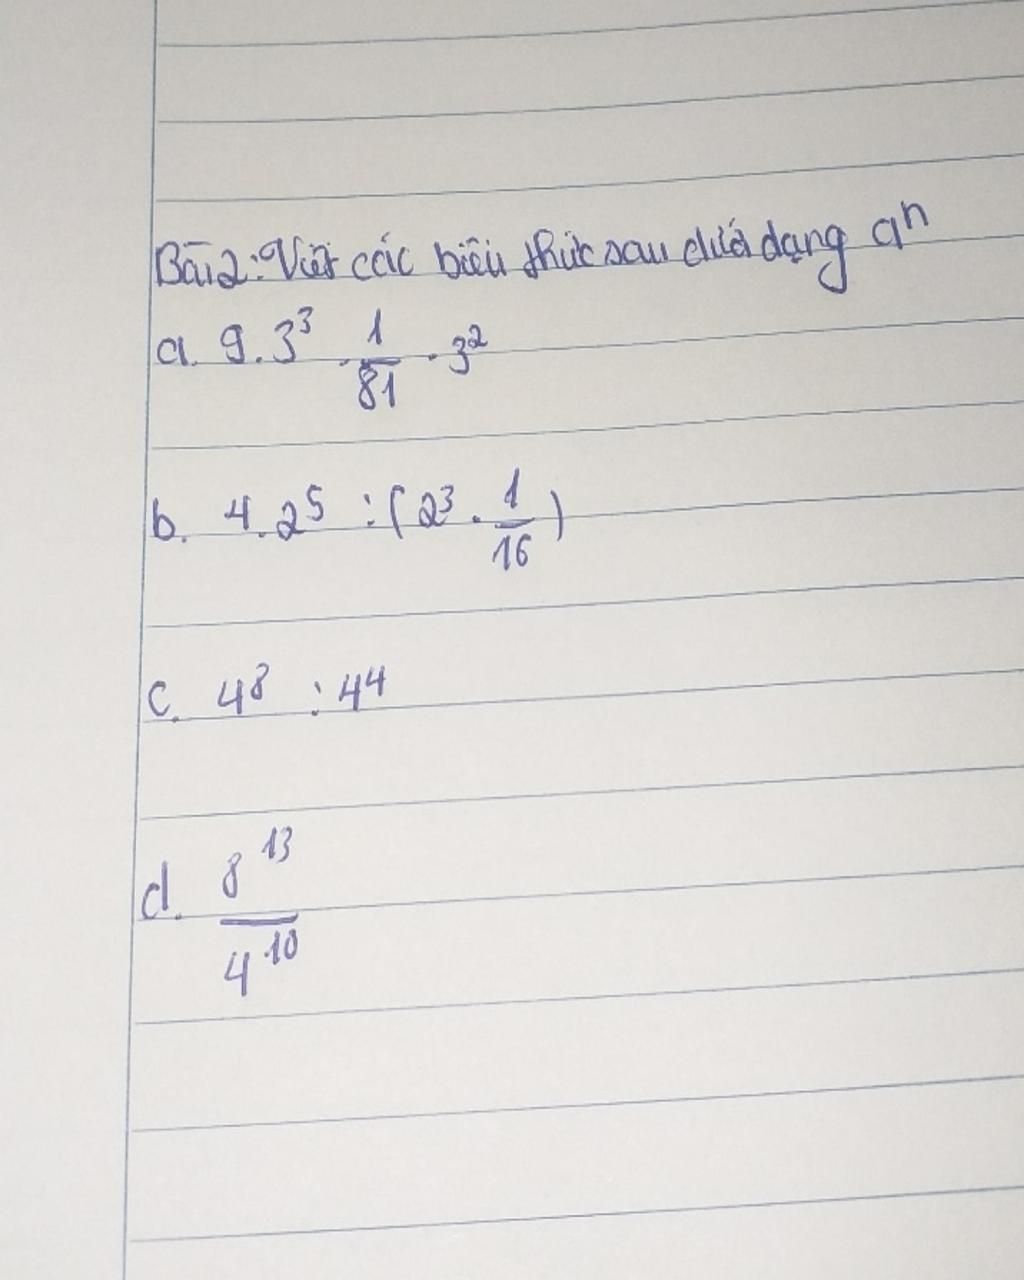 Bài 2: Viết các biểu thức sau dưới dạng aⁿ
a. 9.3³ . 1/81 . 3²
b. 4.2⁵ : (2³ . 1/16)
c. 4⁸ : 4⁴
d. 8¹³/4¹⁰